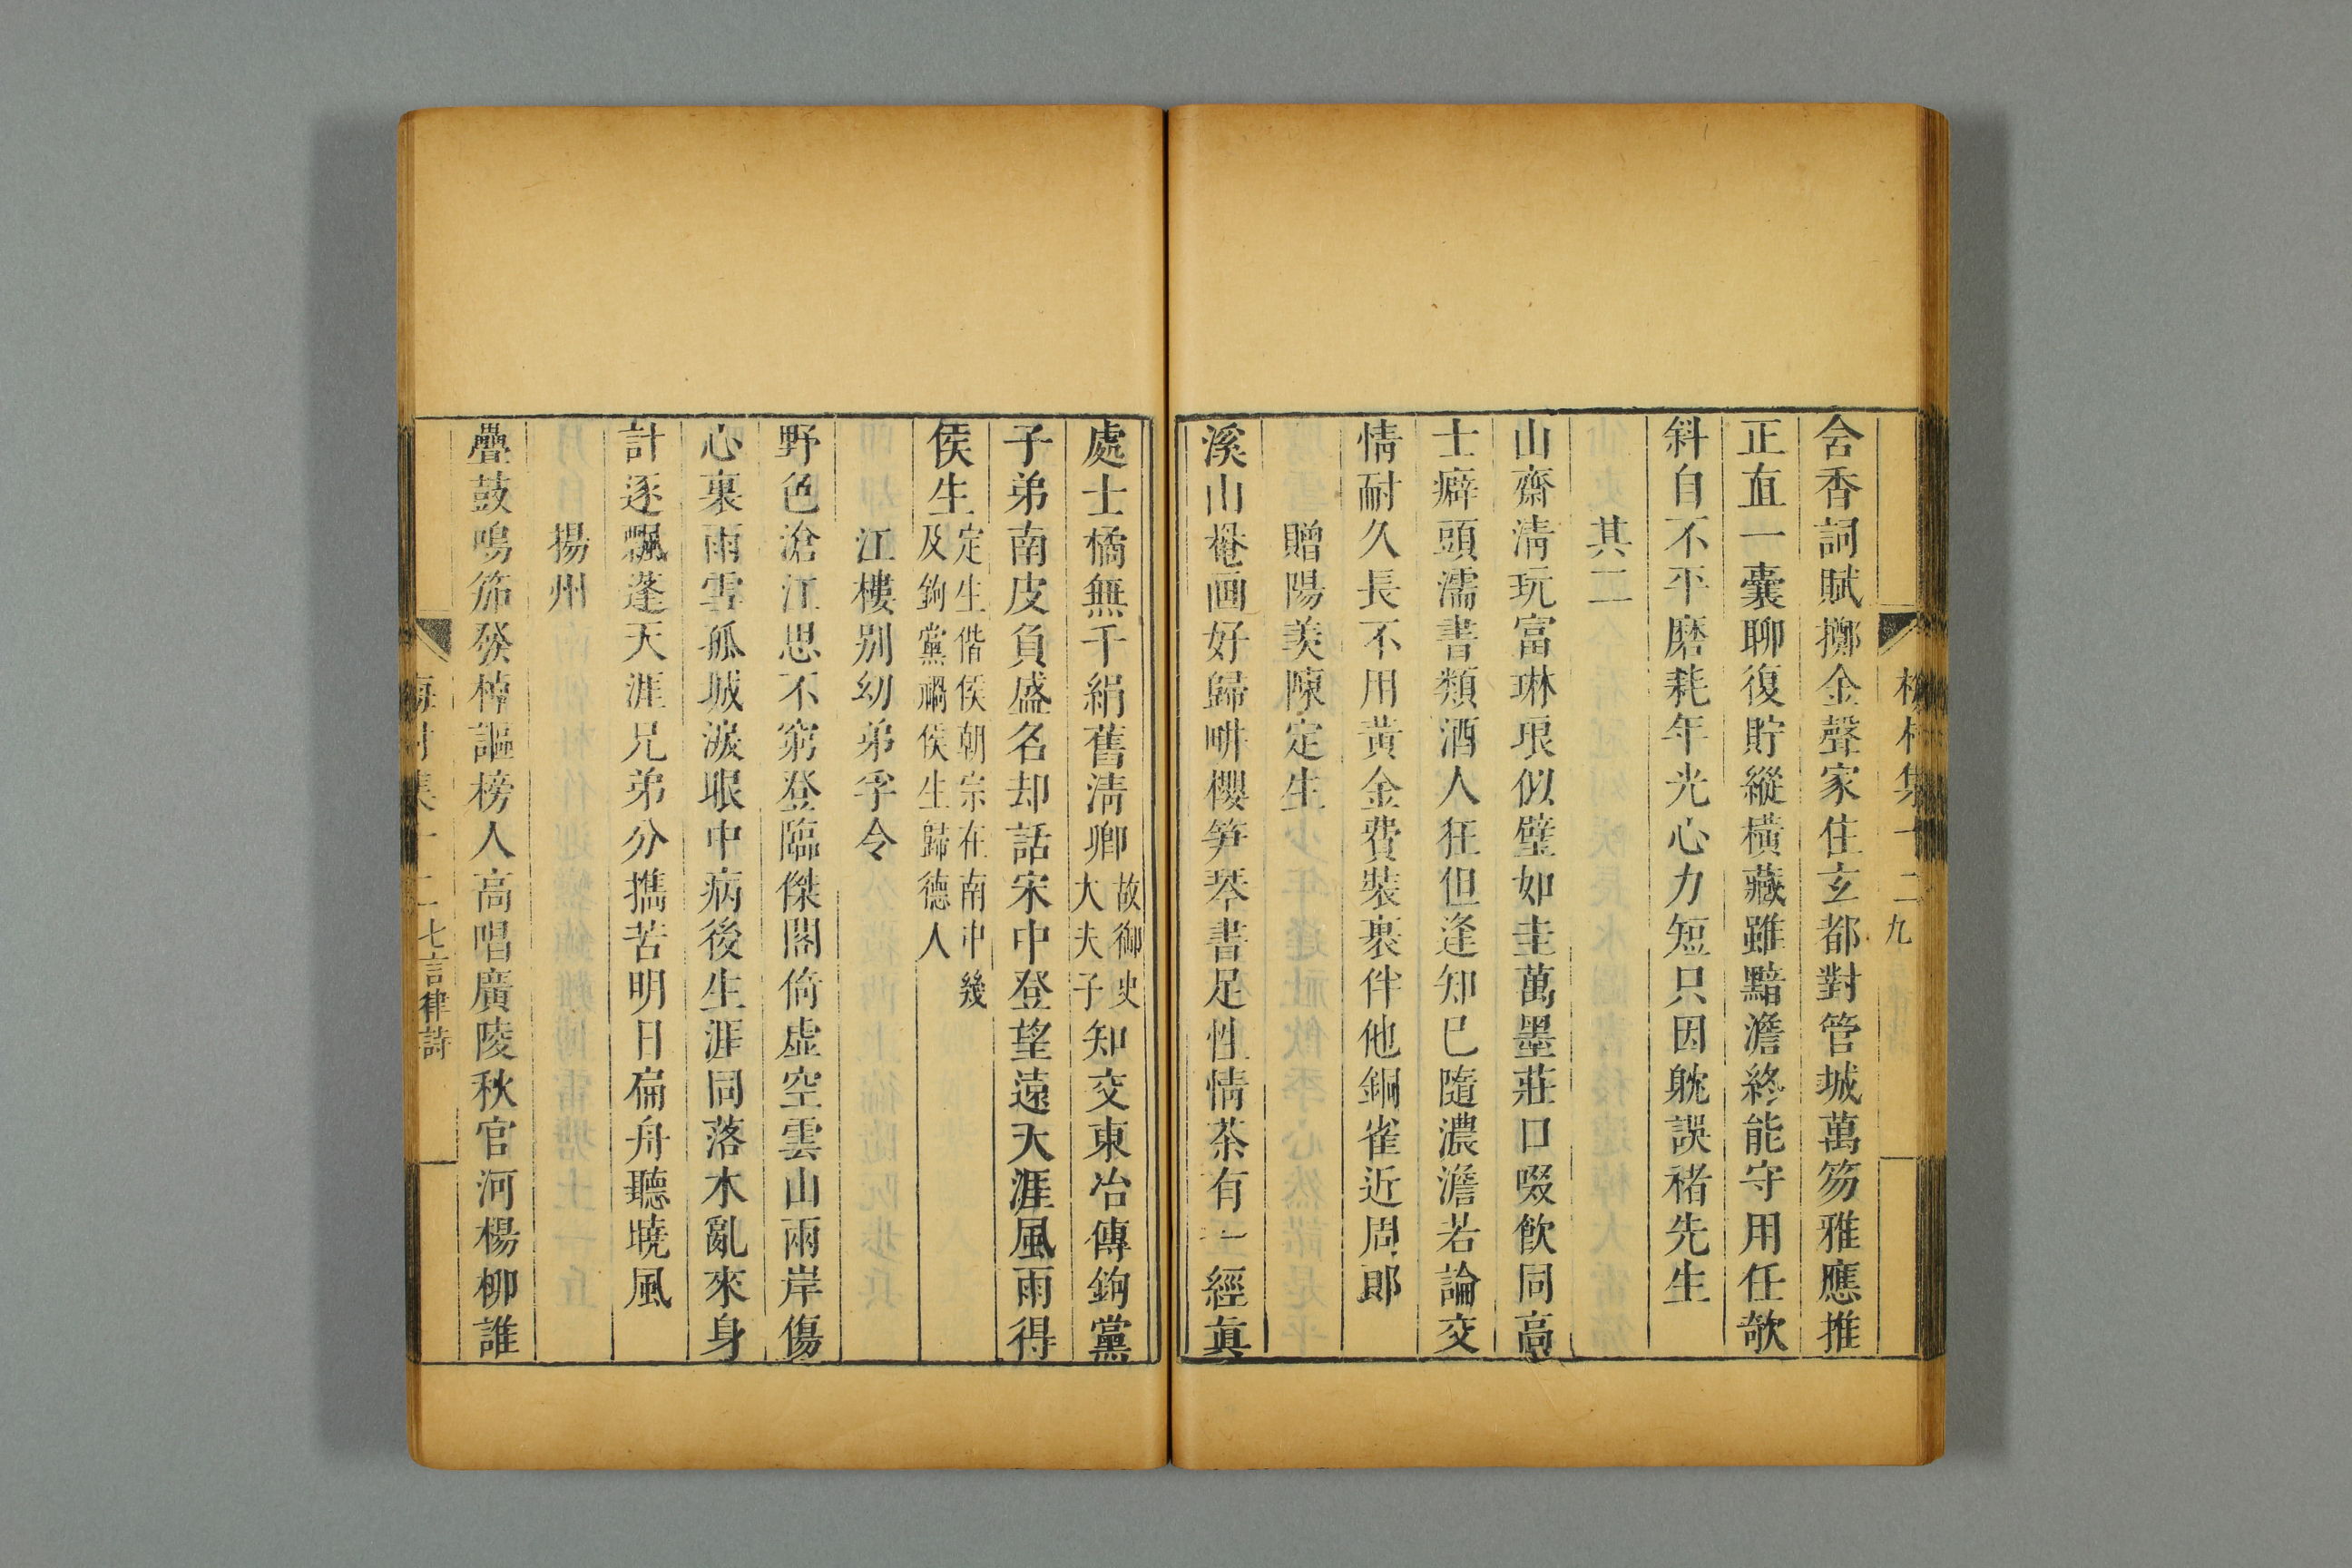 梅村集十二 九
舍香詞賦擲金聲家住玄都對管城萬笏雅應推
正直一囊聊復貯縱橫藏雖黯澹終能守用任欹
斜自不平磨耗年光心力短只因躭誤褚先生
其二
山齋淸玩富琳琅似璧如圭萬墨莊口啜飮同高
士癖頭濡書類酒人狂但逢知已隨濃澹若論交
情耐久長不用黃金費裝裹伴他銅雀近周郎
贈陽羨陳定生
溪山罨画好歸畊櫻笋琴書足性情茶有一經眞
處士橘無千絹舊淸卿故御史大夫子知交東冶傳鉤黨
子弟南皮負盛名却話宋中登望遠天涯風雨得
侯生定生偕侯朝宗在南中幾及鉤黨禍侯生歸德人
江樓別幼弟孚令
野色滄江思不窮登臨傑閣倚虛空雲山兩岸傷
心裏雨雪孤城淚眼中病後生涯同落木亂來身
計逐飄蓬天涯兄弟分攜苦明日扁舟聽曉風
揚州
疊鼓鳴笳發棹謳榜人高唱廣陵秋官河楊柳誰
梅村集十二 七言律詩